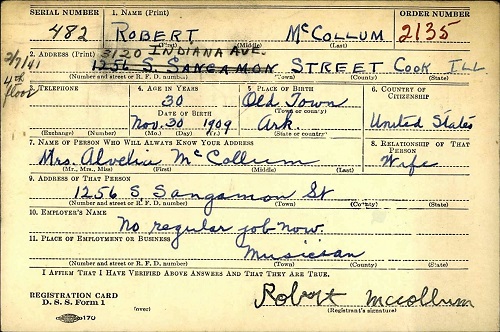 SERIAL NUMBER 1. NAME (Print) ORDER NUMBER
482 ROBERT McCOLLUM 2135
(First) (Middle) (Last)
2/7/41 2. ADDRESS (Print) 3120 INDIANA AVE.
4th floor 1256 S. SANGAMON STREET COOK ILL
(Number and street or R. F. D. number) (Town) (County) (State)
3. TELEPHONE 4. AGE IN YEARS 5. PLACE OF BIRTH 6. COUNTRY OF CITIZENSHIP
30 Old Town
DATE OF BIRTH (Town or county)
Nov. 30 1909 Ark. United States
(Exchange) (Number) (Mo.) (Day) (Yr.) (State or country)
7. NAME OF PERSON WHO WILL ALWAYS KNOW YOUR ADDRESS 8. RELATIONSHIP OF THAT PERSON
Mrs. Alvelia McCollum Wife
(Mr., Mrs., Miss) (First) (Middle) (Last)
9. ADDRESS OF THAT PERSON
1256 S Sangamon St
(Number and street or R. F. D. number) (Town) (County) (State)
10. EMPLOYER'S NAME
No regular job now.
11. PLACE OF EMPLOYMENT OR BUSINESS
Musician
(Number and street or R. F. D. number) (Town) (County) (State)
I AFFIRM THAT I HAVE VERIFIED ABOVE ANSWERS AND THAT THEY ARE TRUE.
REGISTRATION CARD
D. S. S. Form 1 (over) Robert Mccollum
(Registrant's signature)